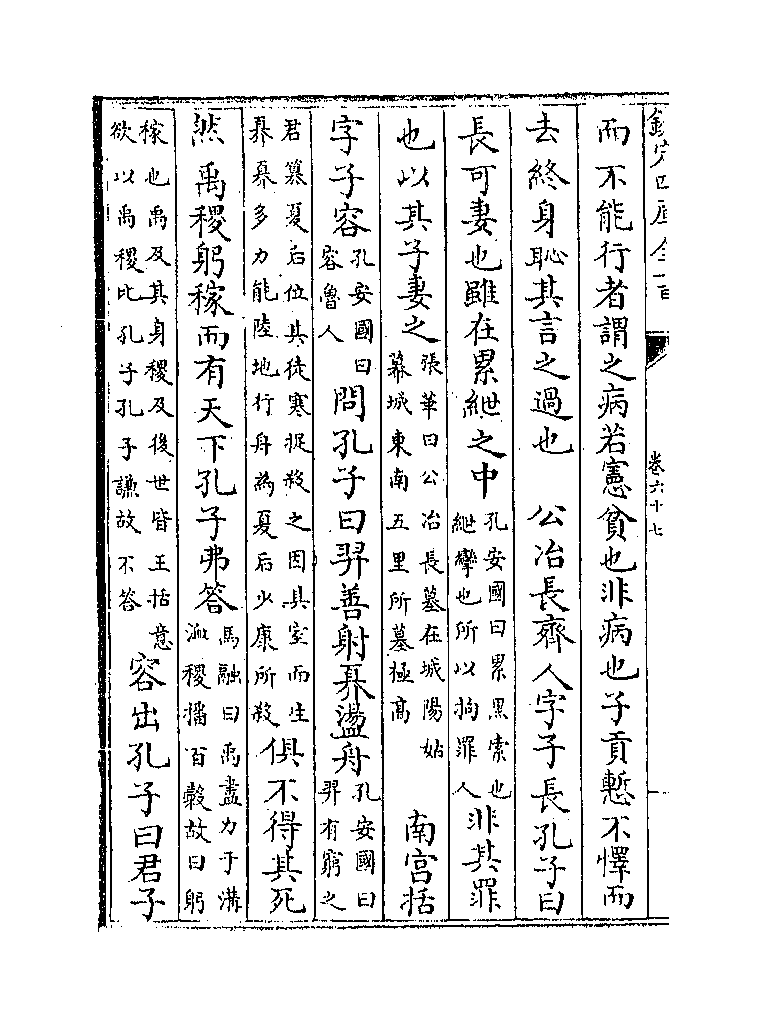 欽定四庫全書
卷六十七
而不能行者謂之病若憲貧也非病也子貢慙不懌而
去終身恥其言之過也　公冶長齊人字子長孔子曰
長可妻也雖在累紲之中孔安國曰累黑索也紲攣也所以拘罪人非其罪
也以其子妻之張華曰公冶長墓在城陽姑幕城東南五里所墓極高　南宫括
字子容孔安國曰容魯人問孔子曰羿善射奡盪舟孔安國曰羿有窮之
君簒夏后位其徒寒浞殺之因其室而生奡奡多力能陸地行舟為夏后少康所殺俱不得其死
然禹稷躬稼而有天下孔子弗答馬融曰禹盡力于溝洫稷播百榖故曰躬
稼也禹及其身稷及後世皆王括意欲以禹稷比孔子孔子謙故不答容出孔子曰君子